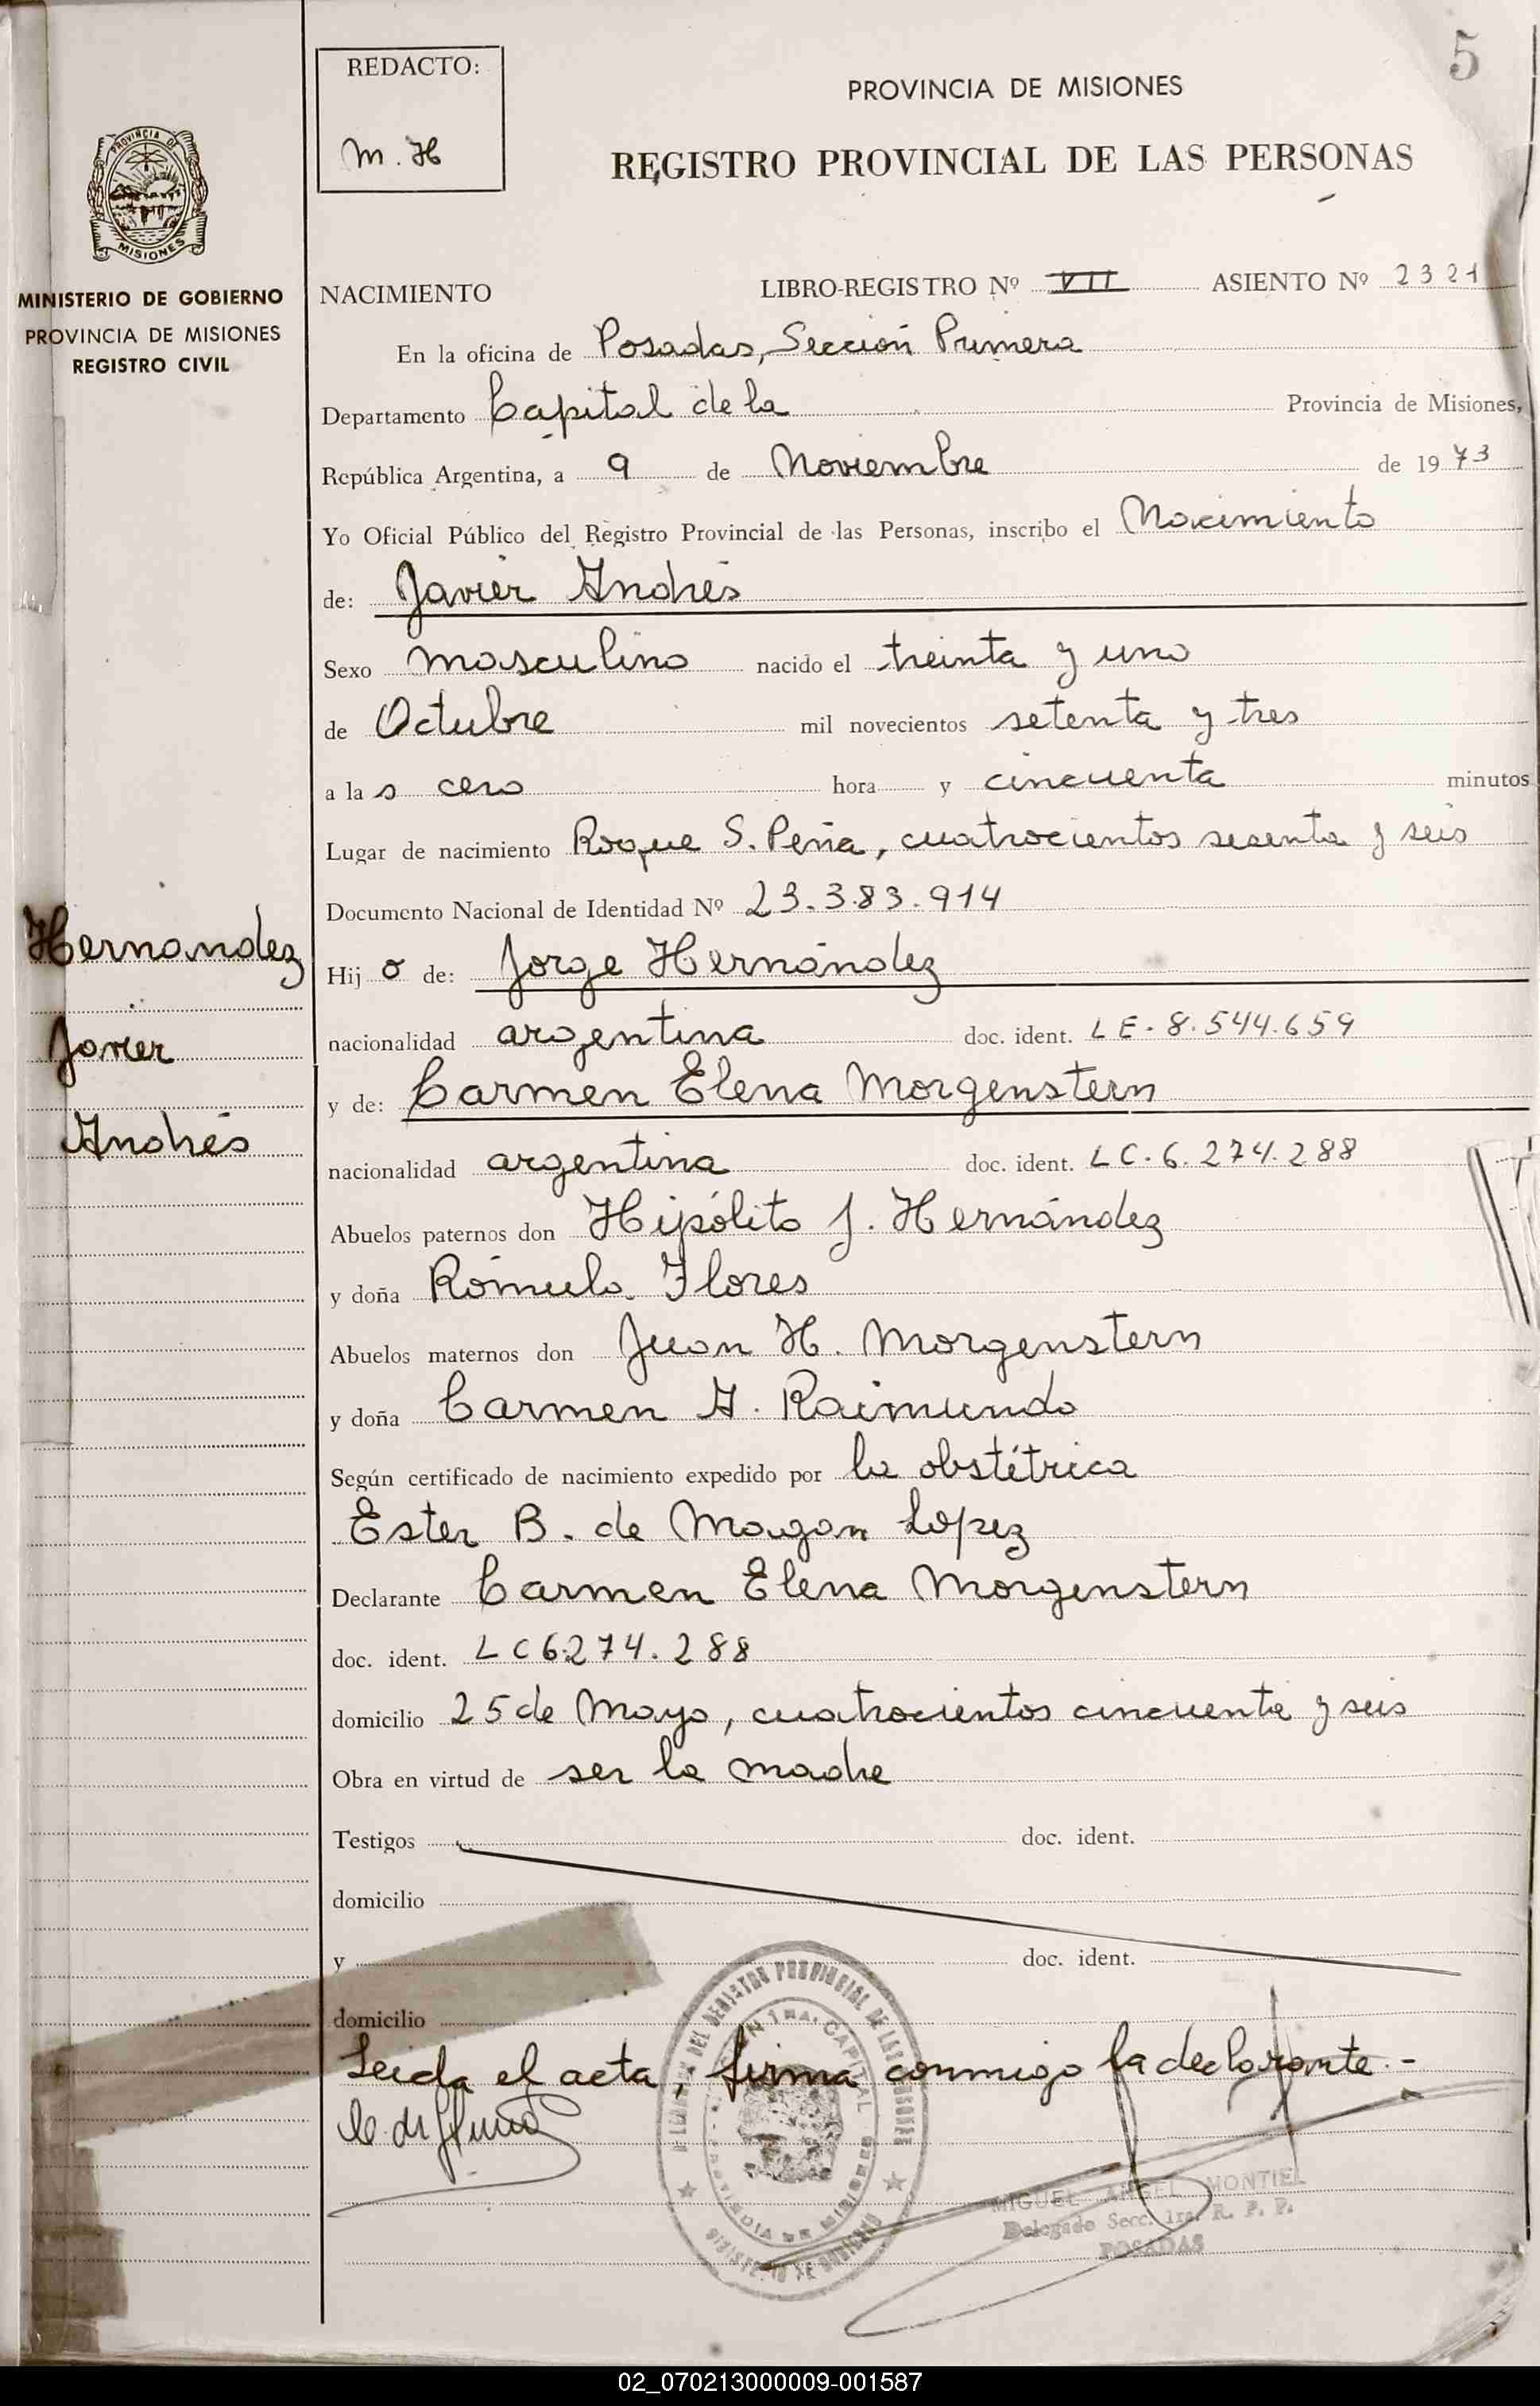 5
REDACTO:
M. H
PROVINCIA DE MISIONES
REGISTRO PROVINCIAL DE LAS PERSONAS
PROVINCIA DE
MISIONES
MINISTERIO DE GOBIERNO
PROVINCIA DE MISIONES
REGISTRO CIVIL
NACIMIENTO LIBRO-REGISTRO Nº VII ASIENTO Nº 2321
En la oficina de Posadas, Sección Primera
Departamento Capital de la Provincia de Misiones,
República Argentina, a 9 de Noviembre de 1973
Yo Oficial Público del Registro Provincial de las Personas, inscribo el Nacimiento
de: Javier Andrés
Sexo masculino nacido el treinta y uno
de Octubre mil novecientos setenta y tres
a las cero hora y cincuenta minutos
Lugar de nacimiento Roque S. Peña, cuatrocientos sesenta y seis
Documento Nacional de Identidad Nº 23.383.914
Hijo de: Jorge Hernández
nacionalidad argentina doc. ident. LE-8.544.659
y de: Carmen Elena Morgenstern
nacionalidad argentina doc. ident. LC.6.274.288
Abuelos paternos don Hipólito J. Hernández
y doña Rómula Flores
Abuelos maternos don Juan H. Morgenstern
y doña Carmen A. Raimundo
Según certificado de nacimiento expedido por la obstétrica
Ester B. de Magan Lopez
Declarante Carmen Elena Morgenstern
doc. ident. LC 6.274.288
domicilio 25 de Mayo, cuatrocientos cincuenta y seis
Obra en virtud de ser la madre
Testigos doc. ident.
domicilio
y doc. ident.
domicilio
Leida el acta, firma conmigo la declarante.-
MIGUEL ANGEL MONTIEL
Delegado Secc. 1ra. R. P. P.
POSADAS
Hernandez
Javier
Andrés
02_070213000009-001587